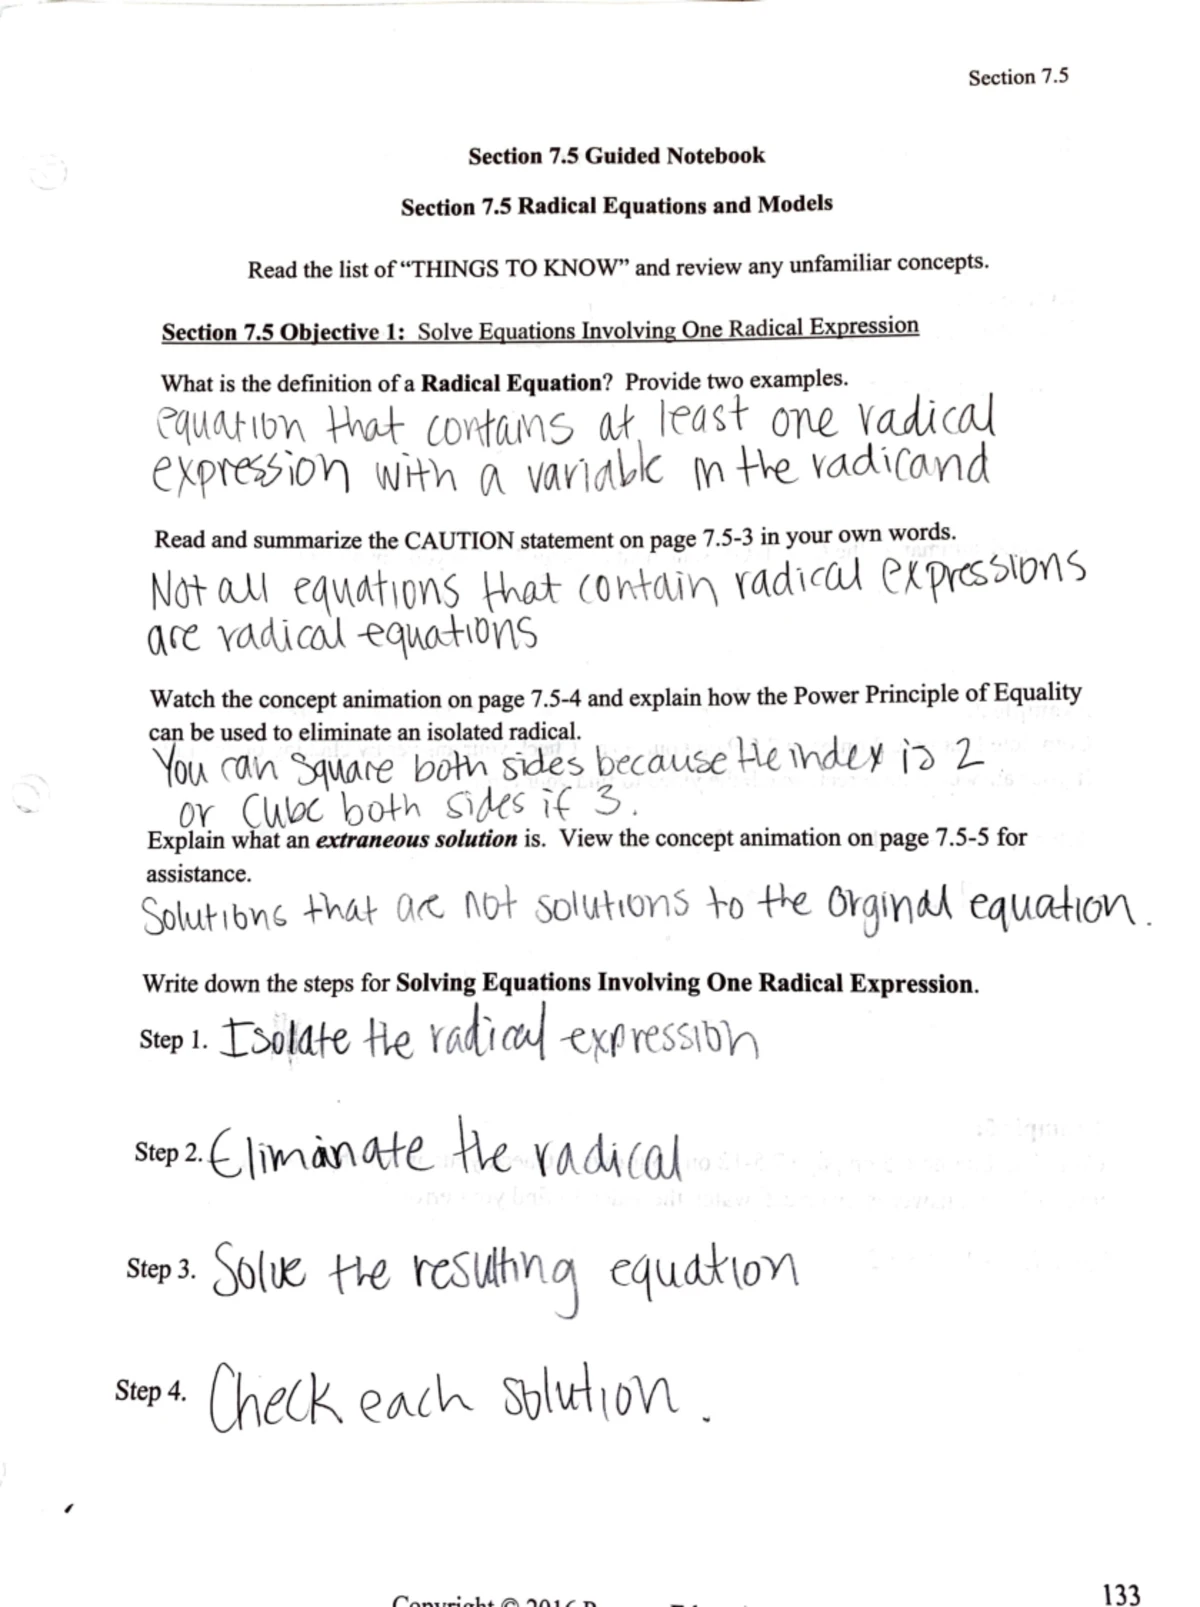 Section 7.5
Section 7.5 Guided Notebook
Section 7.5 Radical Equations and Models
Read the list of “THINGS TO KNOW” and review any unfamiliar concepts.
Section 7.5 Objective 1: Solve Equations Involving One Radical Expression
What is the definition of a Radical Equation? Provide two examples.
equation that contains at least one radical
expression with a variable in the radicand
Read and summarize the CAUTION statement on page 7.5-3 in your own words.
Not all equations that contain radical expressions
are radical equations
Watch the concept animation on page 7.5-4 and explain how the Power Principle of Equality
can be used to eliminate an isolated radical.
You can square both sides because the index is 2
or Cube both sides if 3.
Explain what an extraneous solution is. View the concept animation on page 7.5-5 for
assistance.
Solutions that are not solutions to the orginal equation.
Write down the steps for Solving Equations Involving One Radical Expression.
Step 1. Isolate the radical expression
Step 2. Eliminate the radical
Step 3. Solve the resulting equation
Step 4. Check each solution.
133
Copyright © 2016